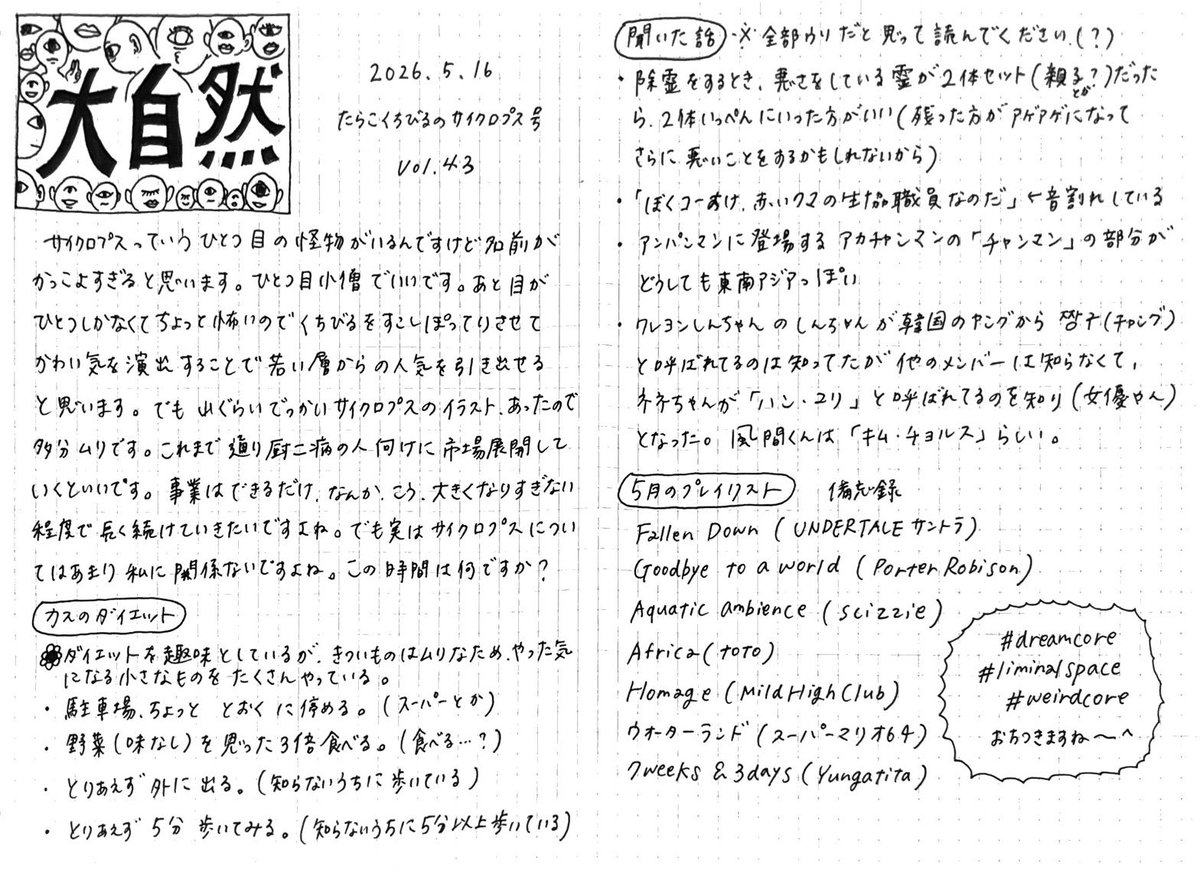 大自然
2026.5.16
たらこくちびるのサイクロプス号
vol.43
サイクロプスっていうひとつ目の怪物がいるんですけど名前が
かっこよすぎると思います。ひとつ目小僧でいいです。あと目が
ひとつしかなくてちょっと怖いのでくちびるをすこしぽってりさせて
かわい気を演出することで若い層からの人気を引き出せる
と思います。でも山ぐらいでっかいサイクロプスのイラスト、あったので
多分ムリです。これまで通り厨二病の人向けに市場展開して
いくといいです。事業はできるだけ、なんか、こう、大きくなりすぎない
程度で長く続けていきたいですよね。でも実はサイクロプスについ
てはあまり私に関係ないですよね。この時間は何ですか?
カスのダイエット
ダイエットを趣味としているが、きついものはムリなため、やった気
になる小さなものをたくさんやっている。
・駐車場、ちょっと とおくに停める。(スーパーとか)
・野菜(味なし)を思った3倍食べる。(食べる…?)
・とりあえず外に出る。(知らないうちに歩いている)
・とりあえず5分歩いてみる。(知らないうちに5分以上歩いている)
聞いた話 ※全部ウソだと思って読んでください(?)
・除霊をするとき、悪さをしている霊が2体セット(親子?とか)だった
ら、2体いっぺんにいった方がいい(残った方がアゲアゲになって
さらに悪いことをするかもしれないから)
・「ぼくコーすけ、赤いクマの生協職員なのだ」←音割れしている
・アンパンマンに登場するアカチャンマンの「チャンマン」の部分が
どうしても東南アジアっぽい
・クレヨンしんちゃんのしんちゃんが韓国のヤングから (チャング)
と呼ばれてるのは知ってたが他のメンバーは知らなくて、
ネネちゃんが「ハン・ユリ」と呼ばれてるのを知り(女優やん)
となった。風間くんは「キム・チョルス」らしい。
5月のプレイリスト 備忘録
Fallen Down (UNDERTALEサントラ)
Goodbye to a world (Porter Robison)
Aquatic ambience (scizzie)
Africa (TOTO)
Homage (Mild High Club)
ウォーターランド(スーパーマリオ64)
7weeks & 3days (Yungatita)
#dreamcore
#liminalspace
#weirdcore
おちつきますね〜^